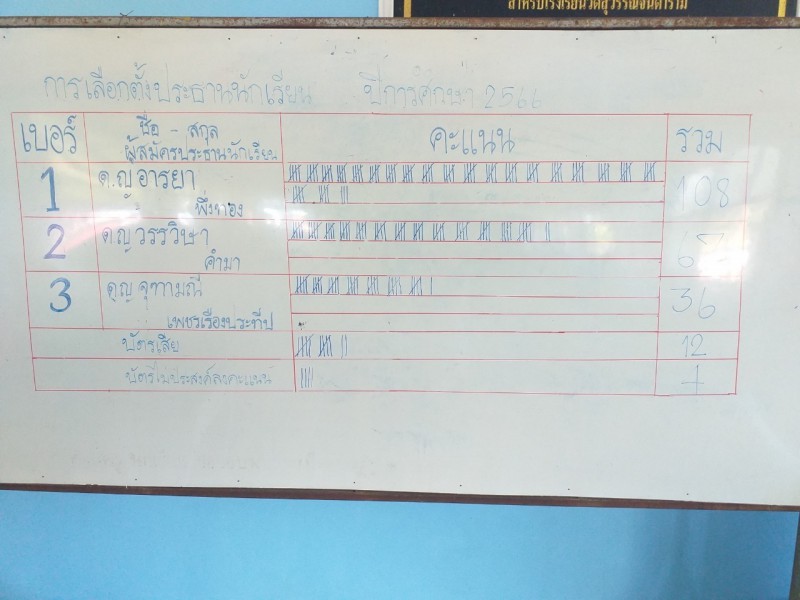 สำหรับโรงเรียนวัดสุวรรณจินดาราม
การเลือกตั้งประธานนักเรียน ปีการศึกษา 2566
เบอร์ ชื่อ - สกุล คะแนน รวม
ผู้สมัครประธานนักเรียน
1 ด.ญ อารยา 108
พึ่งทอง
2 ด.ญ วรรวิษา
คำมา
3 ด.ญ จุฑามณี 36
เพชรเรืองประทีป
บัตรเสีย 12
บัตรไม่ประสงค์ลงคะแนน 4